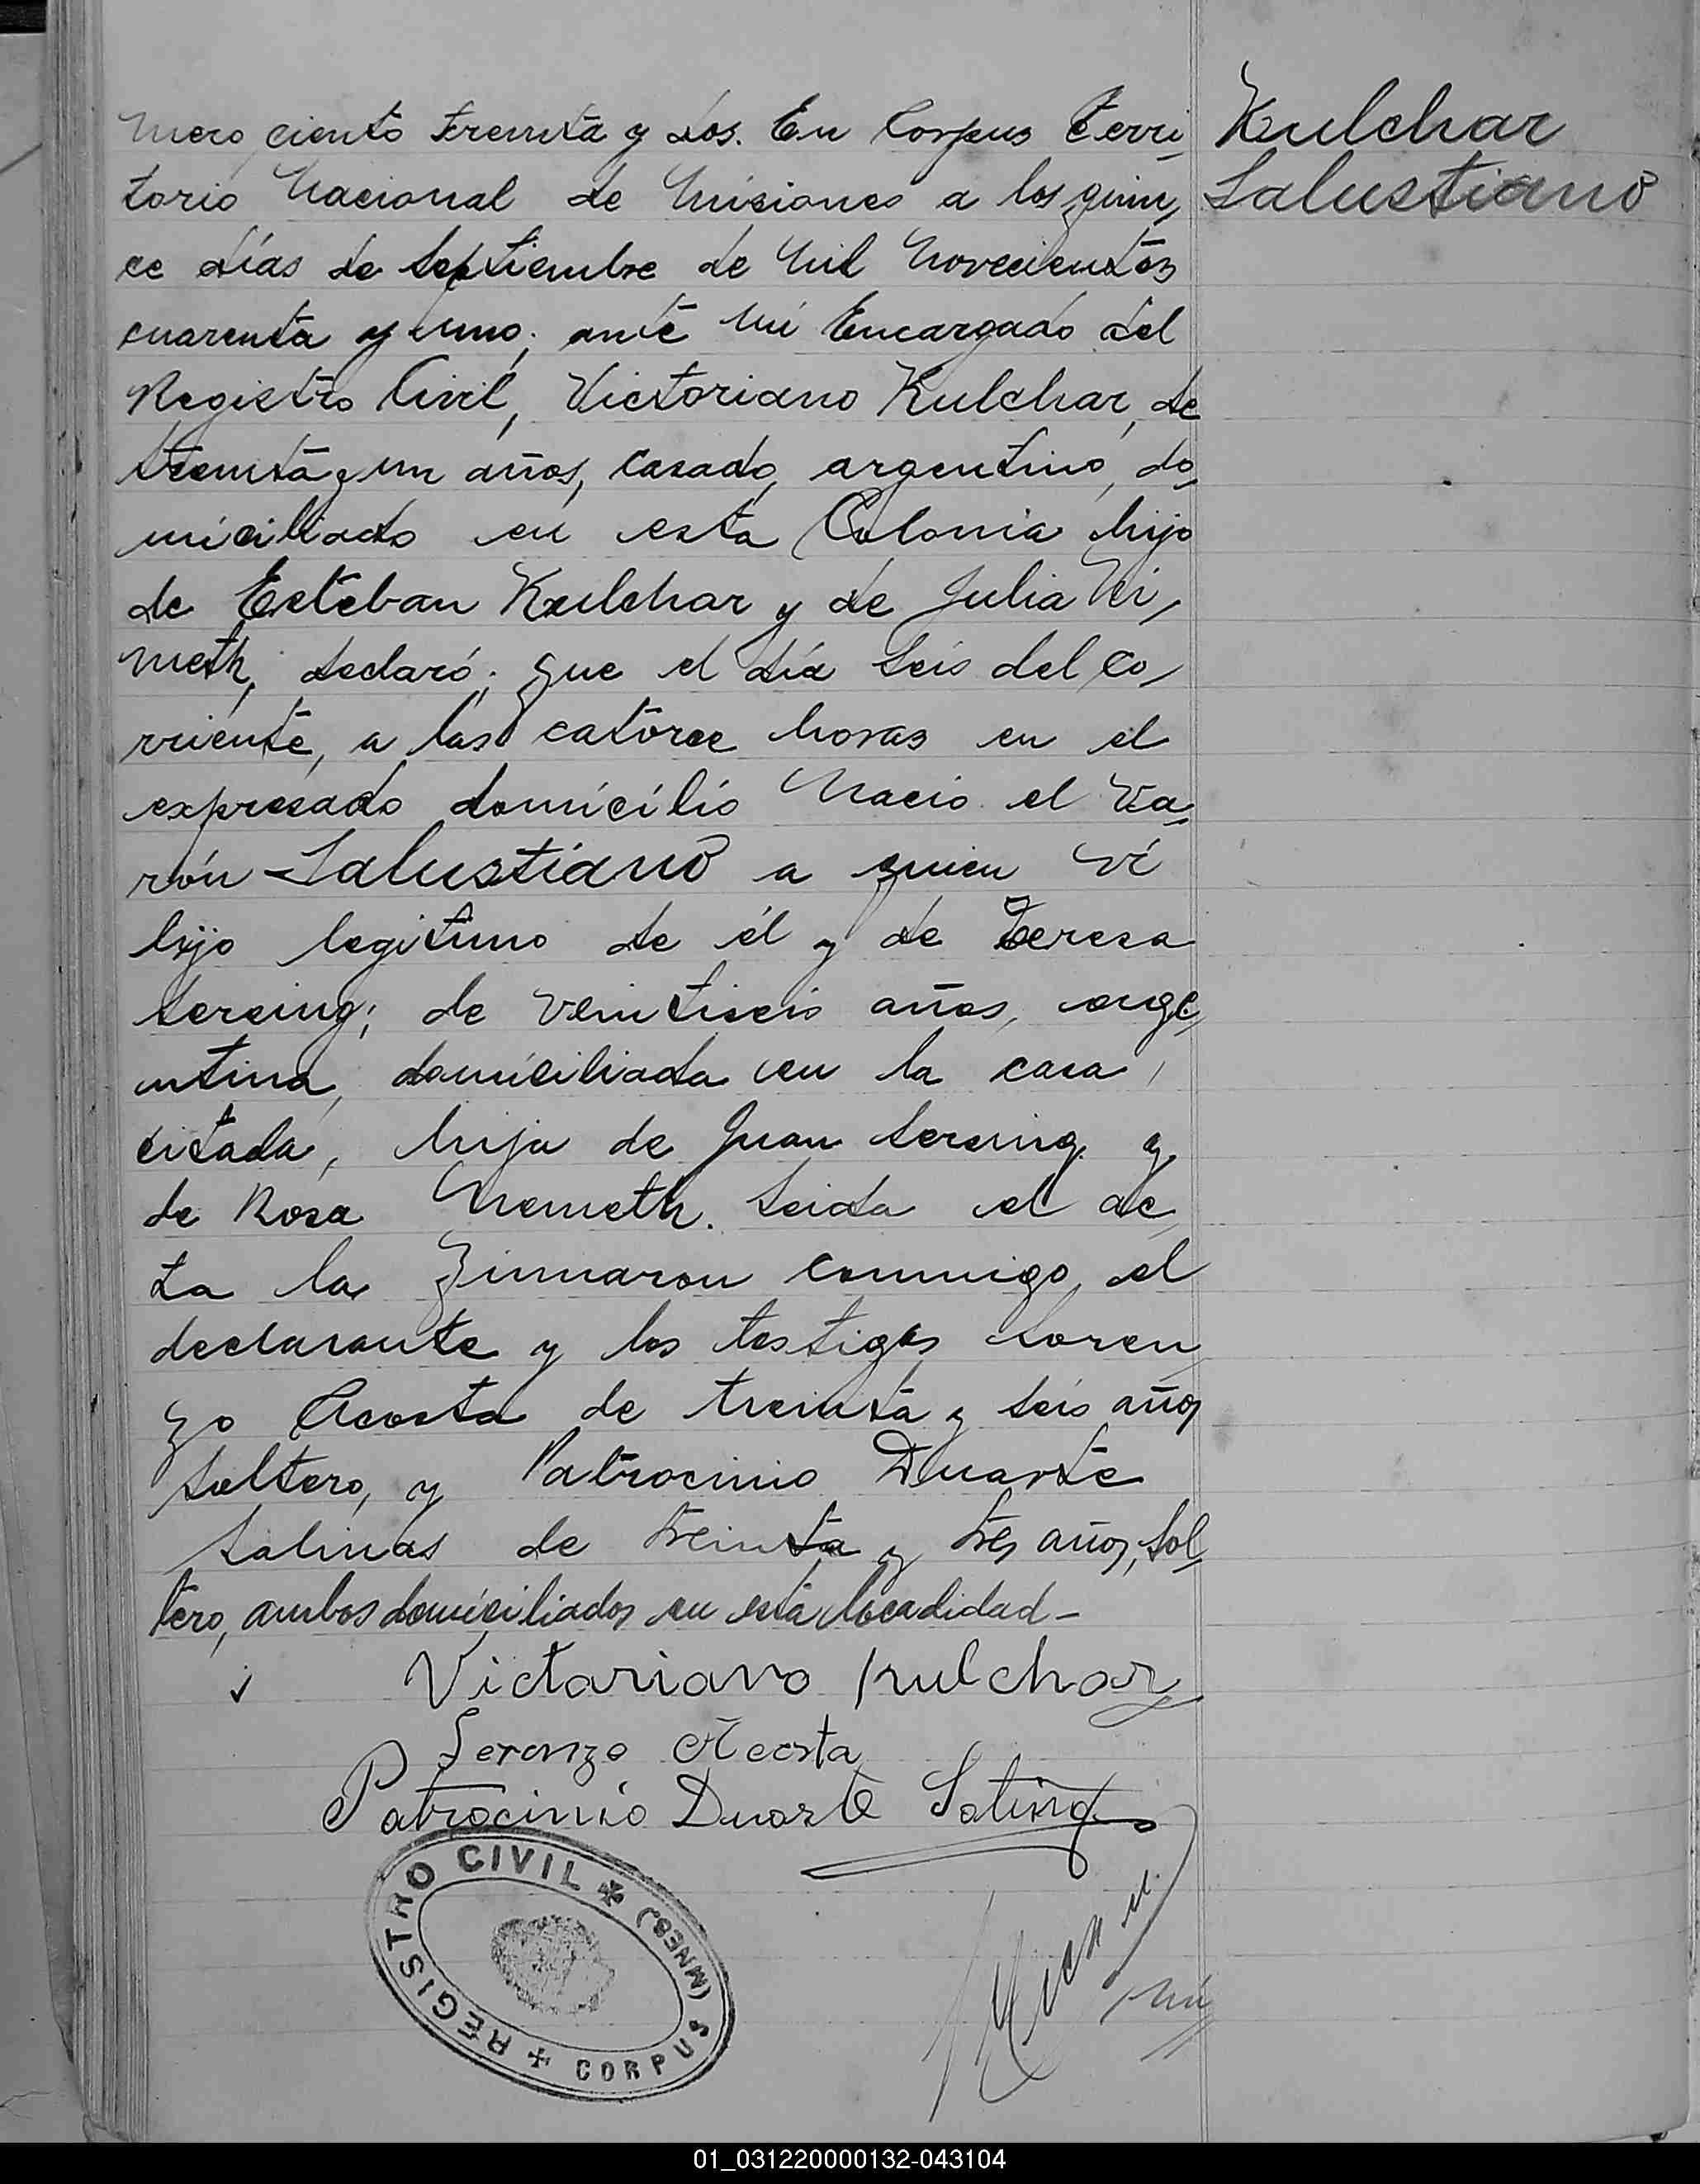 mero ciento treinta y dos. En Corpus Terri
torio Nacional de Misiones a los quin
ce días de Septiembre de Mil Novecientos
cuarenta y uno; ante Mi Encargado del
Registro Civil, Victoriano Kulchar, de
treinta y un años, casado, argentino, do
miciliado en esta Colonia hijo
de Esteban Kulchar y de Julia Ni
meth, declaró; que el día seis del co
rriente, a las catorce horas en el
expresado domicilio Nacio el Va
rón Salustiano a quien ví
hijo legitimo de él y de Teresa
Sereing; de veintiseis años, arge
ntina, domiciliada en la casa
citada, hija de Juan Sereing y
de Rosa Nemeth. Leida el ac
ta la firmaron conmigo, el
declarante y los testigos Loren
zo Acosta de treinta y seis años
soltero, y Patrocinio Duarte
Salinas de treinta y tres años, sol
tero, ambos domiciliados en esta localidad-
Victariano Kulchar
Lorenzo Acosta
Patrocinio Duarte Salinas
REGISTRO CIVIL
CORPUS (MNES.)
Nú
Kulchar
Salustiano
01_031220000132-043104